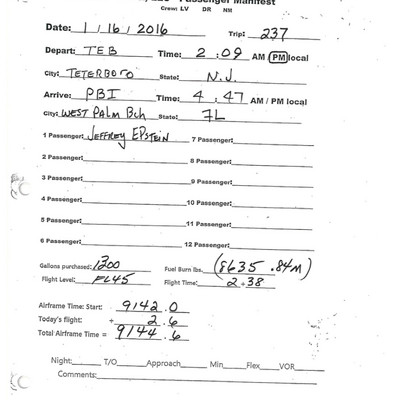 Passenger Manifest
Crew: LV DR NM
Date: 1/16/2016 Trip: 237
Depart: TEB Time: 2:09 AM PM local
City: TETERBORO State: N.J.
Arrive: PBI Time: 4:47 AM / PM local
City: WEST PALM Bch State: FL
1 Passenger: JEFFREY EPSTEIN 7 Passenger:
2 Passenger: 8 Passenger:
3 Passenger: 9 Passenger:
4 Passenger: 10 Passenger:
5 Passenger: 11 Passenger:
6 Passenger: 12 Passenger:
Gallons purchased: 1300 Fuel Burn lbs. (8635 .84M)
Flight Level: FL45 Flight Time: 2+38
Airframe Time: Start: 9142.0
Today's flight: + 2.6
Total Airframe Time = 9144.6
Night: T/O Approach Min Flex VOR
Comments: